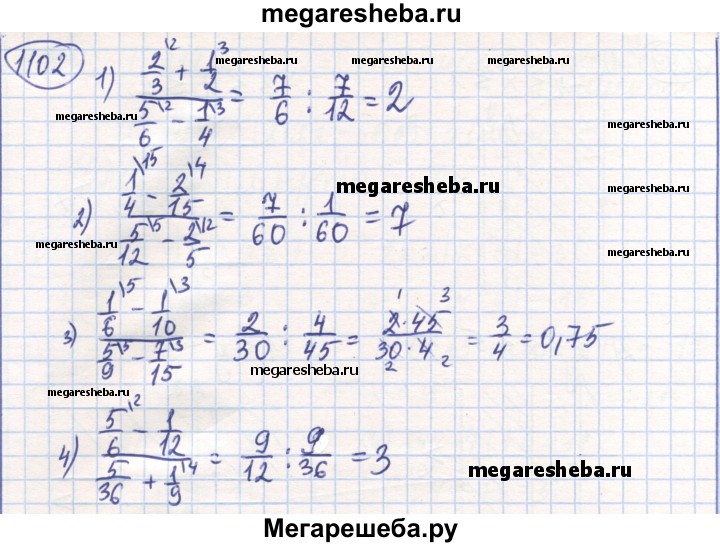 megaresheba.ru
1102
1) (2/3 \2 + 1/2 \3) / (5/6 \2 − 1/4 \3) = 7/6 : 7/12 = 2
megaresheba.ru megaresheba.ru megaresheba.ru
megaresheba.ru megaresheba.ru
2) (1/4 \15 − 2/15 \4) / (5/12 \5 − 2/5 \12) = 7/60 : 1/60 = 7
megaresheba.ru
megaresheba.ru megaresheba.ru
3) (1/6 \5 − 1/10 \3) / (5/9 \5 − 7/15 \3) = 2/30 : 4/45 = 2·45/30·4 = 3/4 = 0,75
1 3
2 2
megaresheba.ru
megaresheba.ru
4) (5/6 \2 − 1/12) / (5/36 + 1/9 \4) = 9/12 : 9/36 = 3
megaresheba.ru
megaresheba.ru
Мегарешеба.ру